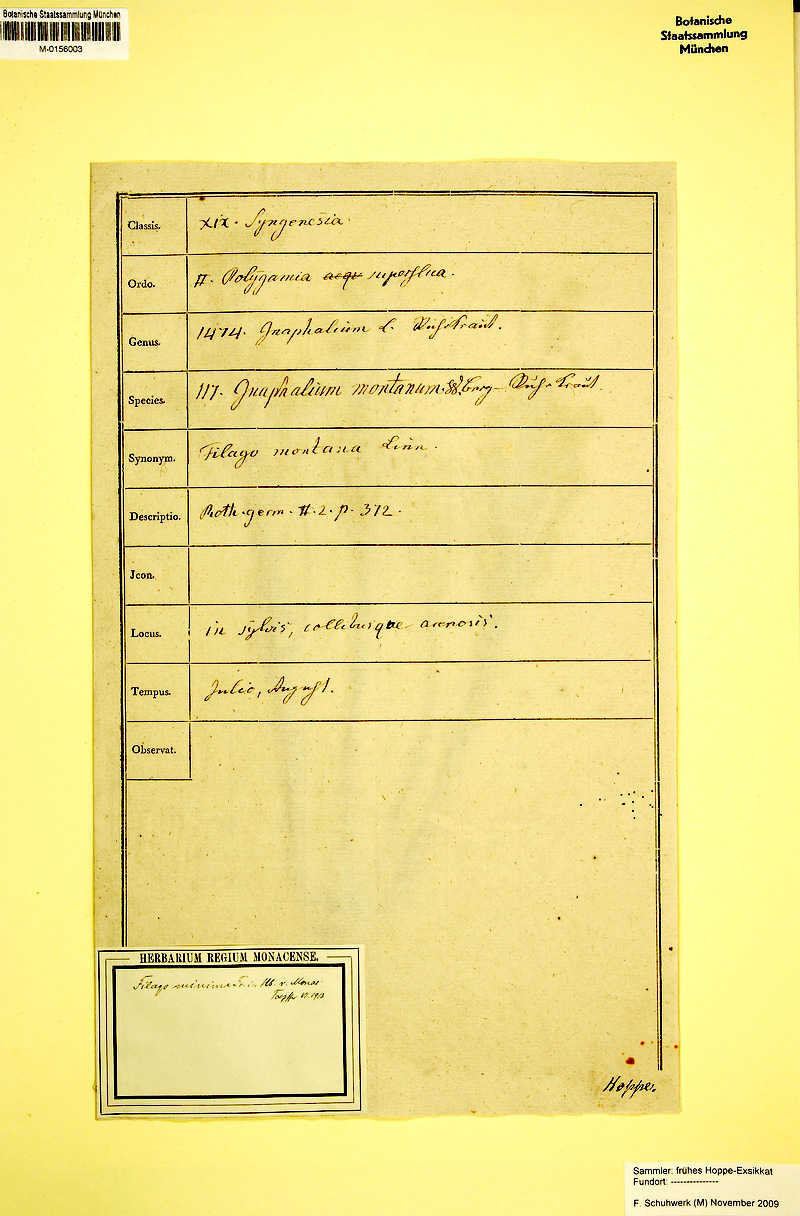 Botanische Staatssammlung München
M-0156003
Botanische
Staatssammlung
München
Classis. XIX. Syngenesia.
Ordo. II. Polÿgamia aequ superflua.
Genus. 1474. Gnaphalium L. Ruhrkraut.
Species. 117. Gnaphalium montanum. Berg-Ruhrkraut.
Synonym. Filago montana Linn.
Descriptio. Roth. germ. II. 2. p. 372.
Jcon.
Locus. in sylvis, collibusque arenosis.
Tempus. Julio, August.
Observat.
HERBARIUM REGIUM MONACENSE.
Filago minima
1913
Hoppe.
Sammler: frühes Hoppe-Exsikkat
Fundort: ---------------
F. Schuhwerk (M) November 2009